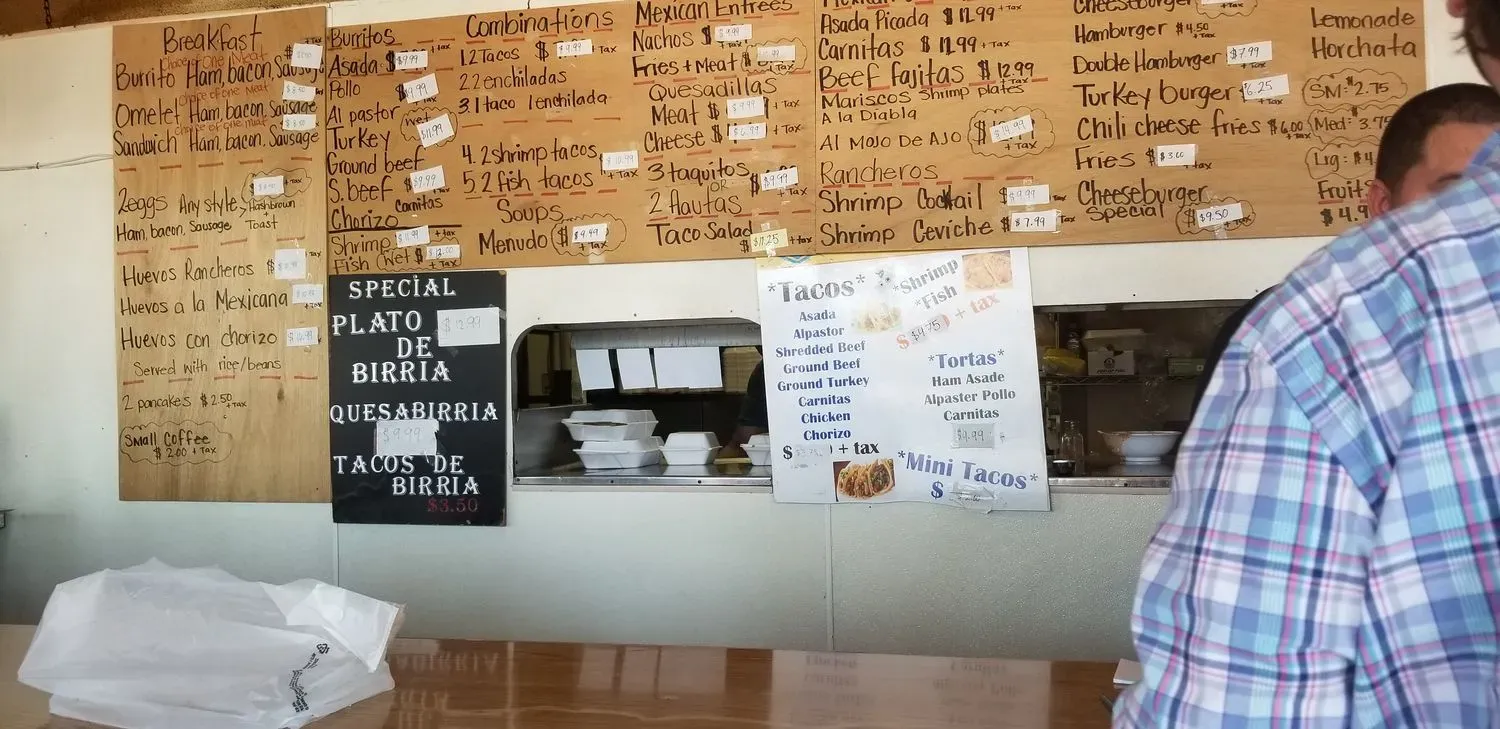 Breakfast
Choice of One Meat
Burrito Ham, bacon, Sausage
+ Tax
Choice of One Meat
Omelet Ham, bacon, Sausage
Choice of One meat
Sandwich Ham, bacon, Sausage
+ Tax
2eggs Any style, Hashbrown
Ham, bacon, Sausage Toast
Huevos Rancheros $
Huevos a la Mexicana
Huevos con chorizo
Served with rice/beans
2 pancakes $2.50 +Tax
Small Coffee
$2.00 + Tax
Burritos
Asada $9.99
Pollo $9.99
Al pastor
Turkey wet $11.99
Ground beef
S. beef $9.99
Chorizo Carnitas
Shrimp $11.99 + Tax
Fish (wet $13.00 + Tax
Combinations
1.2 Tacos $9.99 + Tax
2.2 enchiladas
3.1 taco 1 enchilada
4. 2 shrimp tacos $10.99 + Tax
5. 2 fish tacos
Soups
Menudo $9.49
Mexican Entrees
Nachos $9.99 + Tax
Fries + Meat $
Quesadillas
Meat $9.99 + Tax
Cheese $6.99 + Tax
3 taquitos
OR $9.99 + Tax
2 flautas
Taco Salad $11.25 + Tax
Asada Picada $11.99 + Tax
Carnitas $11.99 + Tax
Beef Fajitas $12.99 + Tax
Mariscos Shrimp plates
A la Diabla
Al Mojo De Ajo $14.99 + Tax
Rancheros
Shrimp Cocktail $9.99 + Tax
Shrimp Ceviche $7.99 + Tax
Cheeseburger + Tax
Hamburger $4.50 + Tax
Double Hamburger $7.99 + Tax
Turkey burger $6.25 + Tax
Chili cheese fries $6.00 + Tax
Fries $3.60 + Tax
Cheeseburger
Special $9.50 + Tax
Lemonade
Horchata
SM: $2.75
Med: $3.75
Lrg: $4
Fruit
$4.9
SPECIAL
PLATO $12.99
DE
BIRRIA
QUESABIRRIA
$9.99
TACOS DE
BIRRIA
$3.50
*Tacos*
Asada
Alpastor
Shredded Beef
Ground Beef
Ground Turkey
Carnitas
Chicken
Chorizo
$ + tax
*Shrimp
*Fish
$4.75 + tax
*Tortas*
Ham Asade
Alpaster Pollo
Carnitas
$9.99
*Mini Tacos*
$